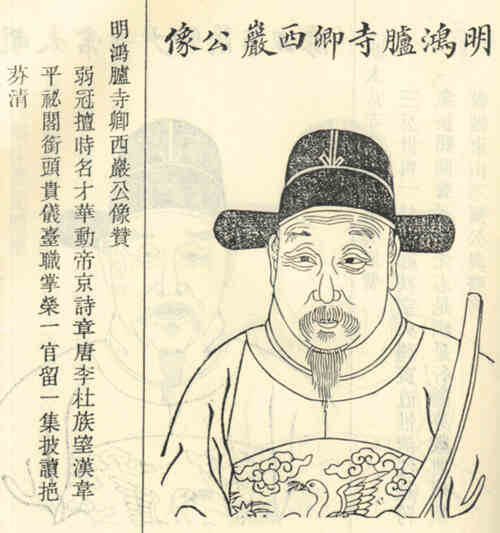 明鴻臚寺卿西巖公像
明鴻臚寺卿西巖公像贊
弱冠擅時名才華動帝京詩章唐李杜族望漢韋
平祕閣銜頭貴儀臺職掌榮一官留一集披讀挹
芬清